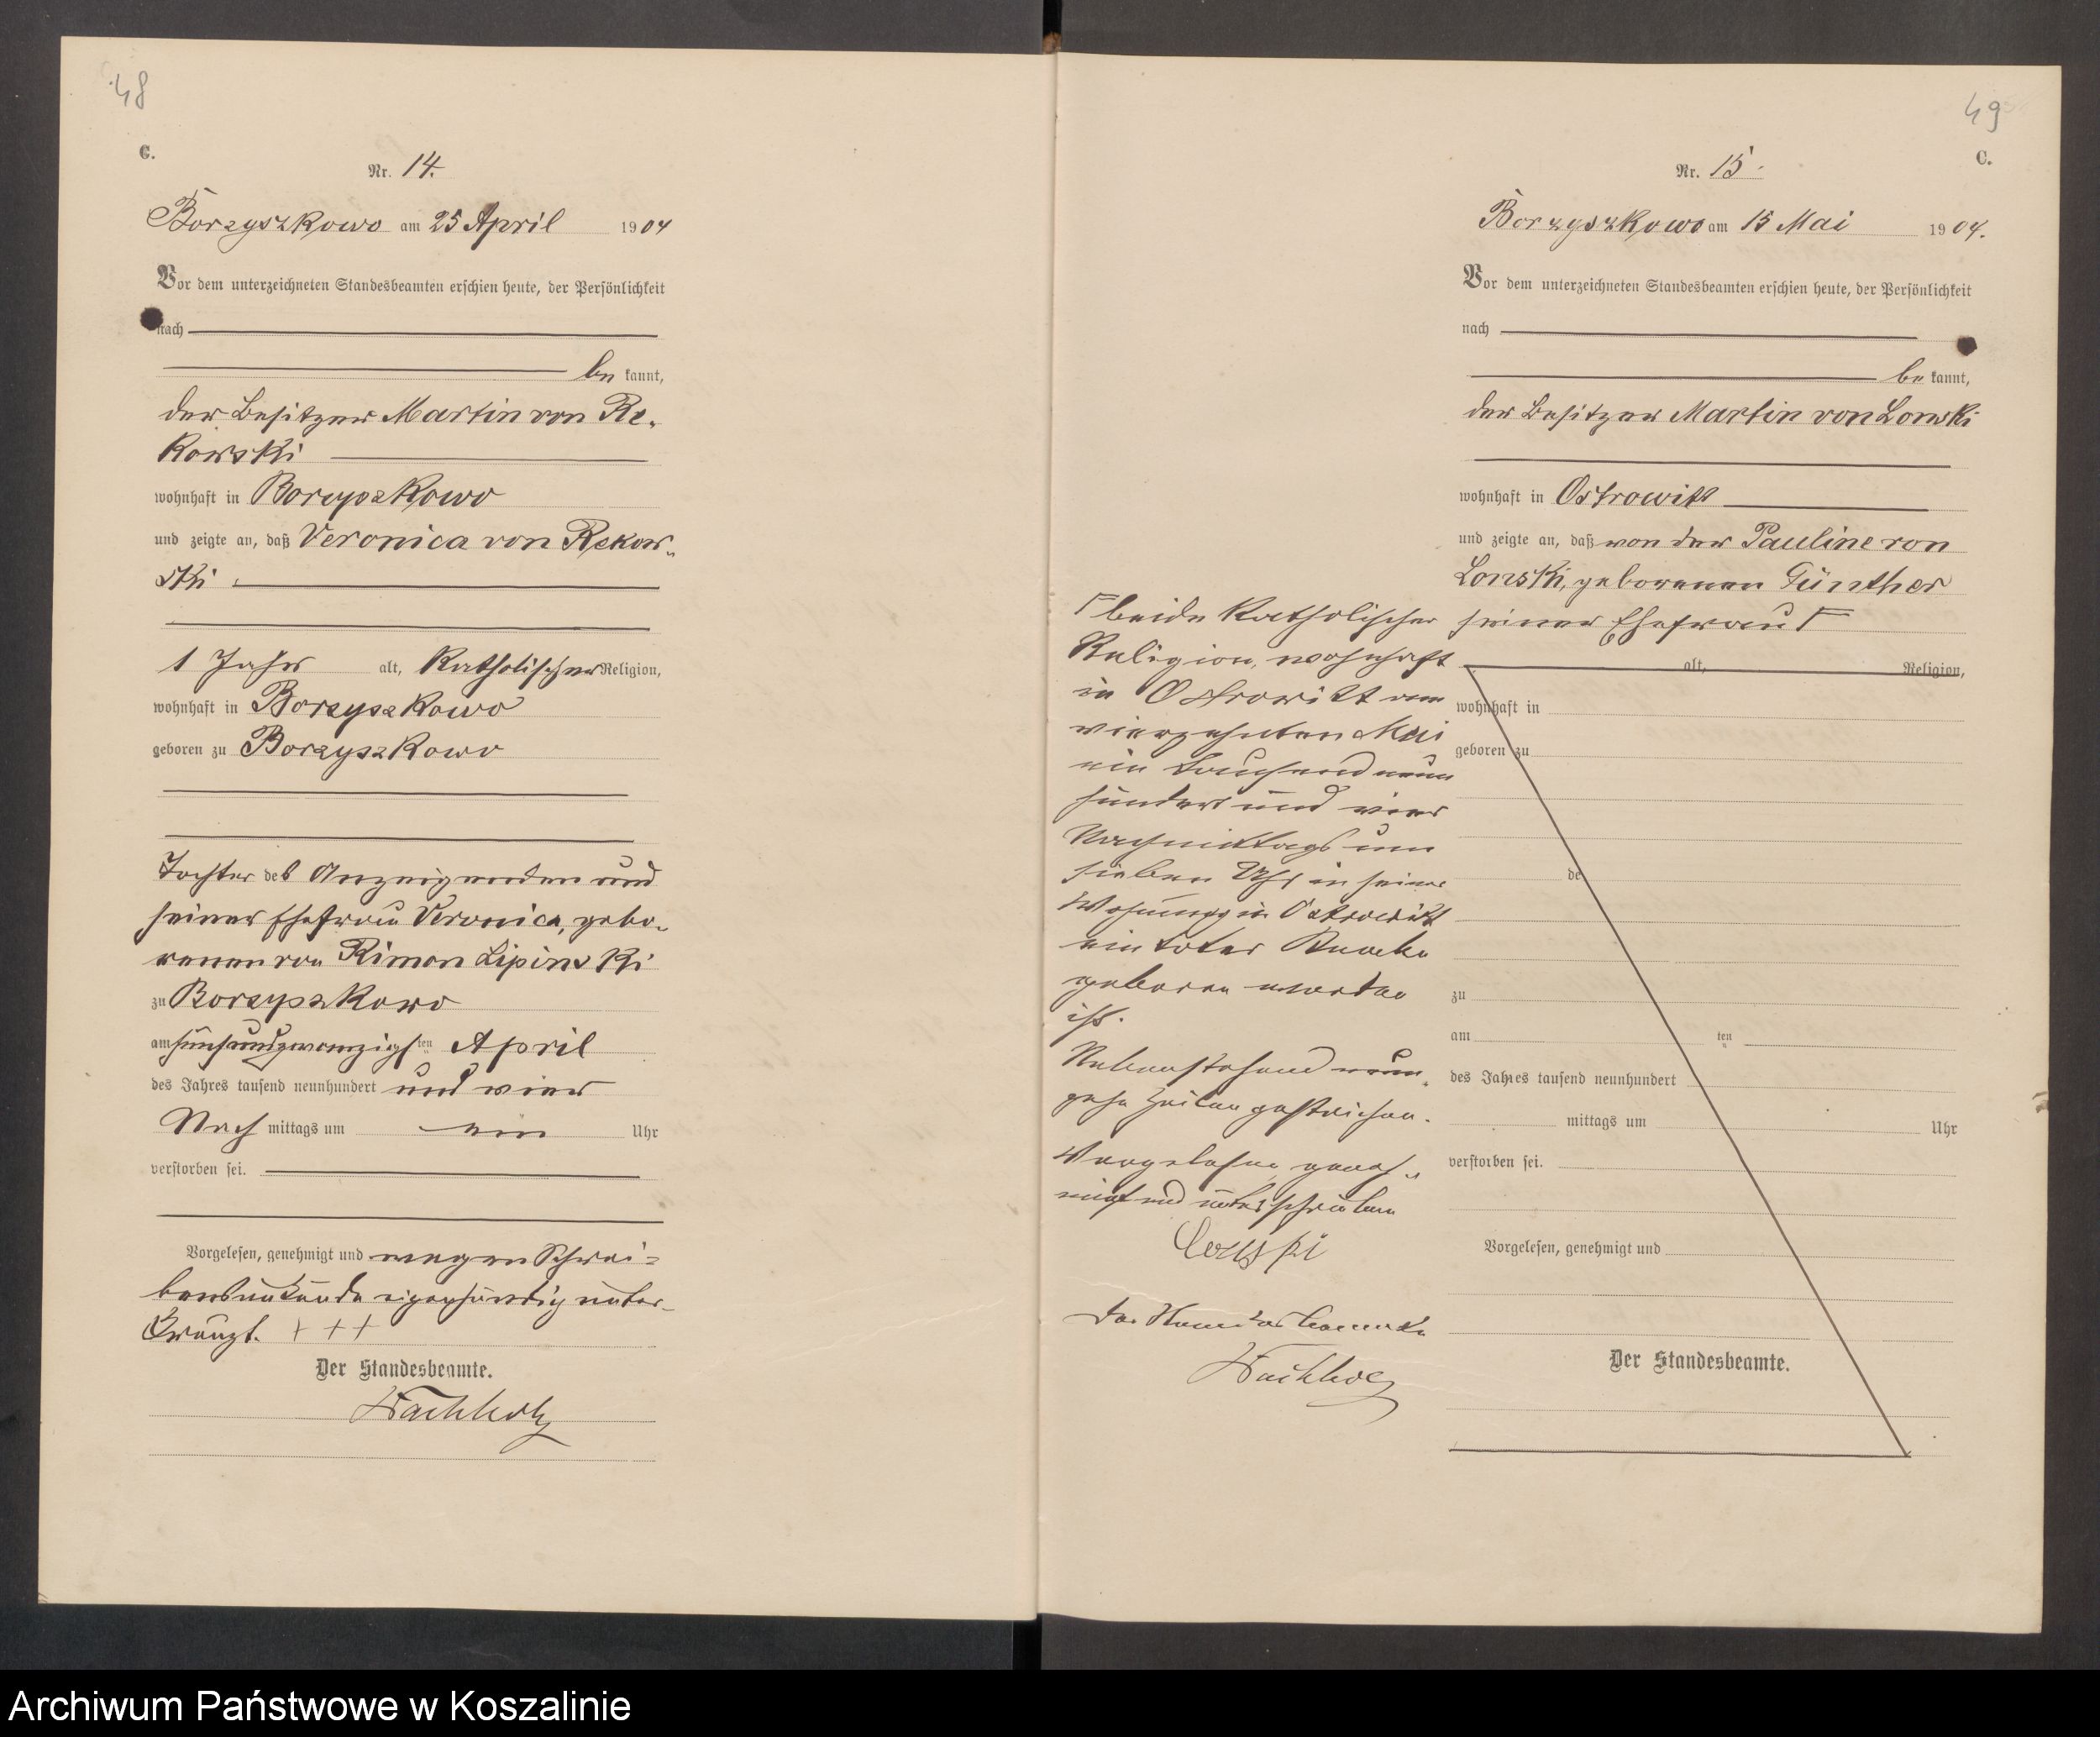 48
C.
Nr. 14.
Borzyszkowo am 25 April 1904
Vor dem unterzeichneten Standesbeamten erschien heute, der Persönlichkeit
nach
be kannt,
der Besitzer Martin von Re-
kowski
wohnhaft in Borzyszkowo
und zeigte an, daß Veronica von Rekow-
ski
1 Jahr alt, katholischer Religion,
wohnhaft in Borzyszkowo
geboren zu Borzyszkowo
Tochter des Anzeigenden und
seiner Ehefrau Veronica, gebo-
renen von Kimon Lipinski
zu Borzyszkowo
am fünfundzwanzigsten April
des Jahres tausend neunhundert und vier
Nach mittags um ein Uhr
verstorben sei.
Vorgelesen, genehmigt und wegen Schrei-
bensunkunde eigenhändig unter-
kreuzt. + + +
Der Standesbeamte.
Wachholz
49
C.
Nr. 15.
Borzyszkowo am 15 Mai 1904.
Vor dem unterzeichneten Standesbeamten erschien heute, der Persönlichkeit
nach
be kannt,
der Besitzer Martin von Lonski
wohnhaft in Ostrowitt
und zeigte an, daß von der Pauline von
Lonski, geborenen Günther
seiner Ehefrau Γ
alt, Religion,
wohnhaft in
geboren zu
de
zu
am ten
des Jahres tausend neunhundert
mittags um Uhr
verstorben sei.
Vorgelesen, genehmigt und
Der Standesbeamte.
Γ beide katholischer
Religion, wohnhaft
in Ostrowitt am
vierzehnten Mai
ein tausend neun
hundert und vier
Nachmittags um
sieben Uhr in seiner
Wohnung in Ostrowitt
ein toter Knabe
geboren worden
ist.
Nebenstehend neun-
zehn Zeilen gestrichen.
Vorgelesen, geneh-
migt und unterschrieben
Lonski
Der Standesbeamte
Wachholz
Archiwum Państwowe w Koszalinie